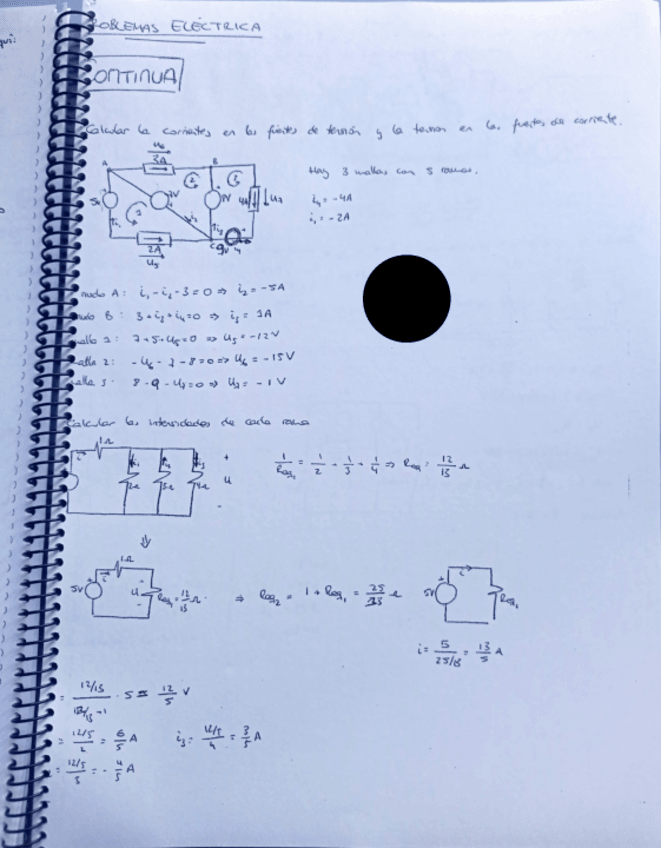 OBLEMAS ELÉCTRICA
ONTINUA
Calcular la corrientes en las fuentes de tensión y la tension en las fuentes de corriente.
Hay 3 mallas con 5 ramas.
i₄ = -4A
i₁ = -2A
u₆
3A
A
B
2A
u₅
nudo A: i₁ - i₂ - 3 = 0 ⇒ i₂ = -5A
nudo B: 3 + i₃ + i₄ = 0 ⇒ i₃ = 1A
alla 1: 7 + 5 + u₅ = 0 ⇒ u₅ = -12V
alla 2: - u₆ - 7 - 8 = 0 ⇒ u₆ = -15V
alla 3: 8 - 9 - u₇ = 0 ⇒ u₇ = -1V
Calcular las intensidades de cada rama
1Ω
i
2Ω 3Ω 4Ω
+
u
-
1/Req₁ = 1/2 + 1/3 + 1/4 ⇒ Req₁ = 12/13 Ω
⇓
5V
1Ω
i
u
Req₁ = 12/13 Ω
⇒ Req₂ = 1 + Req₁ = 25/13 Ω
5V
i
Req₂
i = 5/(25/13) = 13/5 A
= (12/13)/(12/13 + 1) · 5 = 12/5 V
= (12/5)/2 = 6/5 A i₃ = (12/5)/4 = 3/5 A
= (12/5)/3 = - 4/5 A